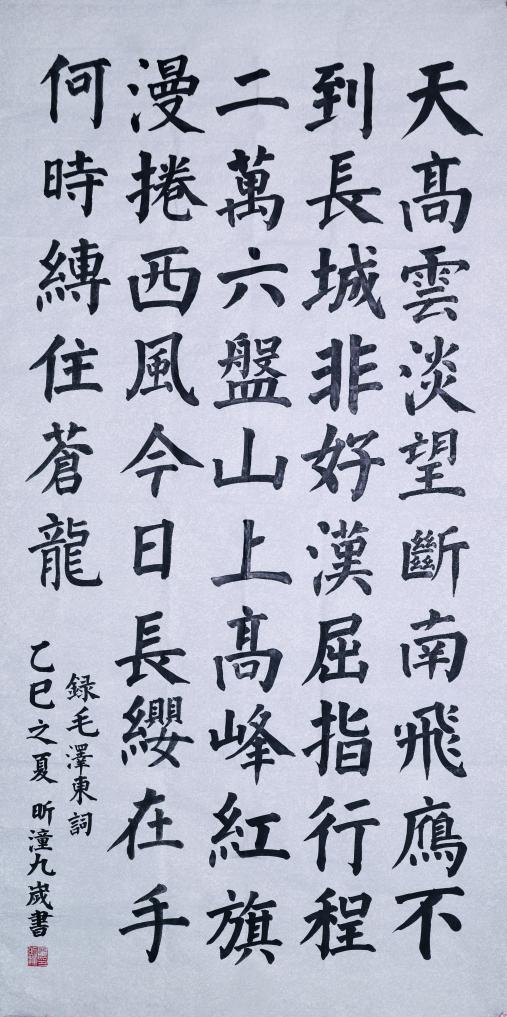 天高雲淡望斷南飛鴈不
到長城非好漢屈指行程
二萬六盤山上高峰紅旗
漫捲西風今日長纓在手
何時縛住蒼龍
録毛澤東詞
乙巳之夏昕潼九歲書